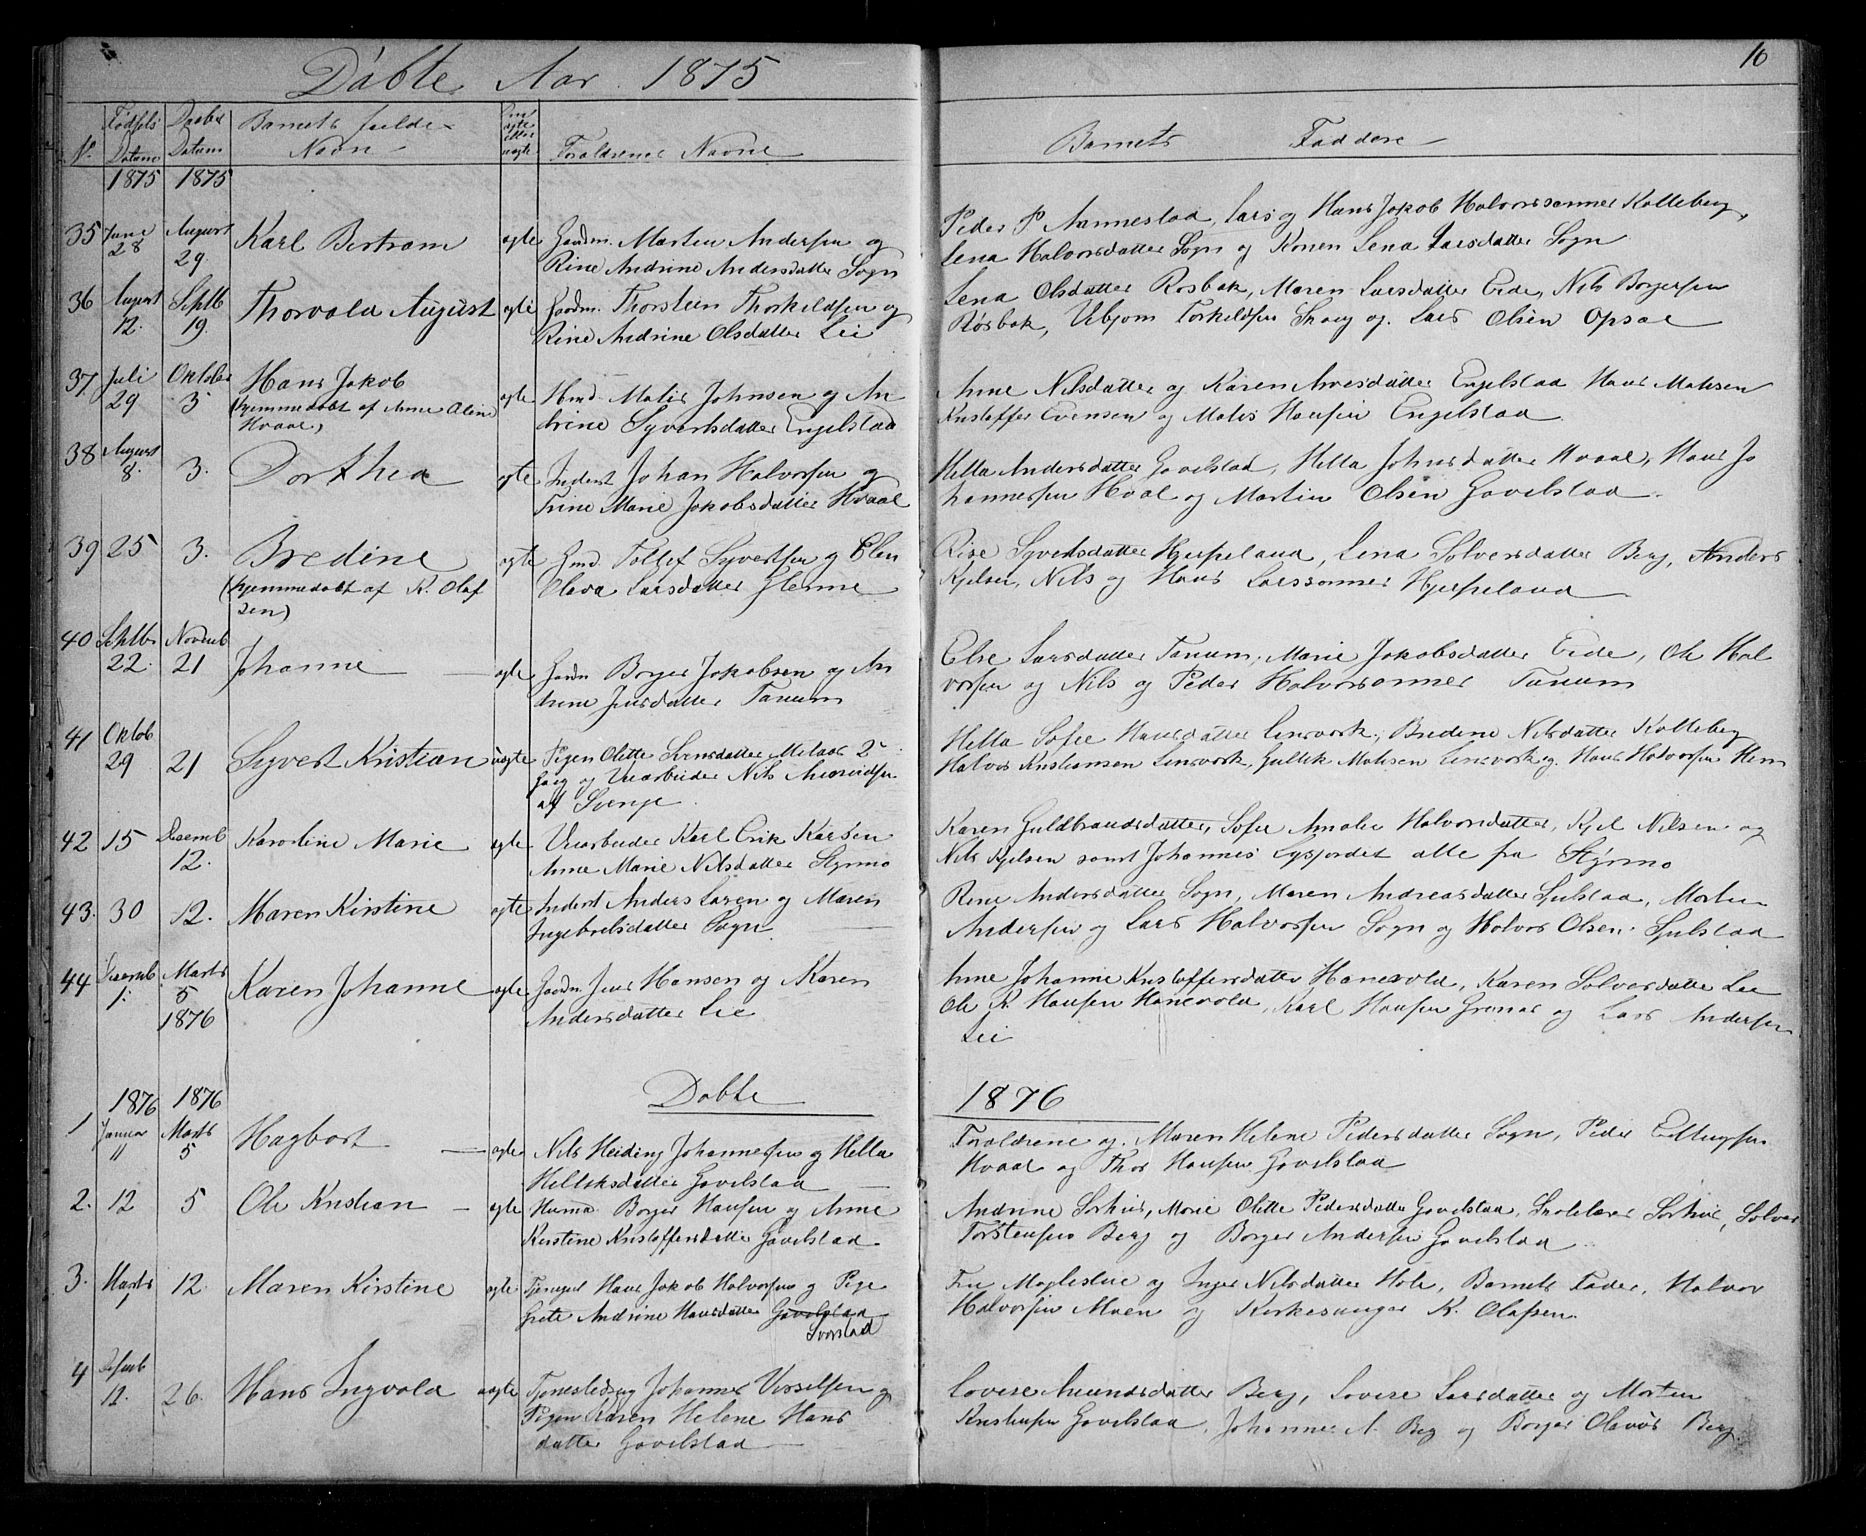 Døbte Aar 1875
16
No. Fødsels Datum Daabs Datum Barnets fulde Navn Om ægte eller uægte Forældrenes Navne
Barnets Faddere
1875 1875
35 Juni 28 August 29. Karl Bertram ægte Gaardm. Morten Andersen og
Rine Andrine Andersdatter Sogn
Peder P Aannestad, Lars og Hans Jakob Halvorssønner Kolleberg,
Lena Halvorsdatter Sogn og Konen Lena Larsdatter Sogn
36 August 12. Septb 19. Thorvald August ægte Gaardm. Thorsteen Thorkildsen og
Rine Andrine Olsdatter Lie
Lena Olsdatter Røsbak, Maren Larsdatter Eide, Nils Borgersen
Røsbak, Torkildsen Skoug og Lars Olsen Opsal
37 Juli 29 Oktober 3 Hans Jakob
(hjemmedøbt af Anne Oline
Hvaal)
ægte Hmd. Matis Johnsen og An
drine Syvertsdatter Engelstad
Anne Nilsdatter og Karen Arnesdatter Engelstad Hans Matisen
Kristoffer Evensen og Matis Hansen Engelstad
38 August 8. 3. Dorthea ægte Inderst Johan Halvorsen og
Trine Marie Jakobsdatter Hvaal
Hella Andersdatter Gavelstad, Hella Johnsdatter Hvaal, Hans Jo
hannessen Hvaal og Martin Olsen Gavelstad
39 25 3. Bredine
(hjemmedøbt af K. Olaf
sen)
ægte Gmd. Tollef Syvertsen og Elen
Olava Larsdatter Glenne
Rise Syvertsdatter Hjerpeland, Lena Solversdatter Berg, Anders
Kjelsen, Nils og Hans Larssønner Hjerpeland
40 Septbr 22. Novemb 21 Johanne ægte Gaardm Borger Jakobsen og An
drine Jensdatter Tanum
Else Larsdatter Tanum, Marie Jakobsdatter Eide, Ole Hal
vorsen og Nils og Peder Halvorssønner Tanum
41 Oktob 29 21 Syvert Kristian uægte Pigen Olette Svensdatter 2den
Gang og Veiarbeider Nils
af Sverige
Hella Sofie Hansdatter Lensvork, Bredine Nilsdatter Kolleberg
Halvor Kristiansen Lensvork, Gullik Matisen Lensvork og Hans Halvorsen Hem
42 15 Desemb 12. Karoline Marie ægte Veiarbeider Karl Erik Karsen
Anne Marie Nilsdatter Styrmo
Karen Guldbrandsdatter, Sofie Amalie Halvorsdatter, Kjel Nilsen og
Nils Kjelsen samt Johannes Lysjordet alle fra Styrmo
43. 30 12. Maren Kirstine ægte Inderst Anders Larsen og Maren
Ingebretsdatter Sogn
Rine Andersdatter Sogn, Maren Andreasdatter Sjulstad, Morten
Andersen og Lars Halvorsen Sogn og Halvor Olsen Sjulstad
44 Desemb 1. Marts 5 1876 Karen Johanne ægte Gaardm Jens Hansen og Karen
Andersdatter Lie
Anne Johanne Kristoffersdatter Hanevold, Karen Solversdatter Lie
Ole K Hansen Hanevold, Karl Hansen Grønas og Lars Andersen
Lie
Døbte 1876
1876 1876
1 Januar 11 Marts 5 Hagbart ægte Nils Heiding Johannessen og Hella
Helleksdatter Gavelstad
Forældrene og Maren Helene Pedersdatter Sogn, Peder Ellingsen
Hvaal og Thor Hansen Gavelstad
2. 12 5 Ole Kristian ægte Husmd. Borger Hansen og Anne
Kirstine Kristoffersdatter Gavelstad
Andrine Sørhus, Marie Olette Pedersdatter Gavelstad, Skolelærer Sørhus, Solver
Torstensen Berg og Borger Andersen Gavelstad
3. Marts 1 12. Maren Kirstine ægte Tjenger Hans Jakob Halvorsen og Pige
Grete Andrine Hansdatter Gavelstad
Svorstad
Fru Maglestue og Inger Nilsdatter Hole, Barnets Fader, Halvor
Halvorsen Moen og Kirkesanger K. Olafsen.
4 12. 26. Hans Ingvald uægte Tjenestedreng Johannes og
Pigen Karen Helene Hans
datter Gavelstad
Lovise Amundsdatter Berg, Lovise Larsdatter og Morten
Kristensen Gavelstad, Johannes A. Berg og Borger Olavus Berg.